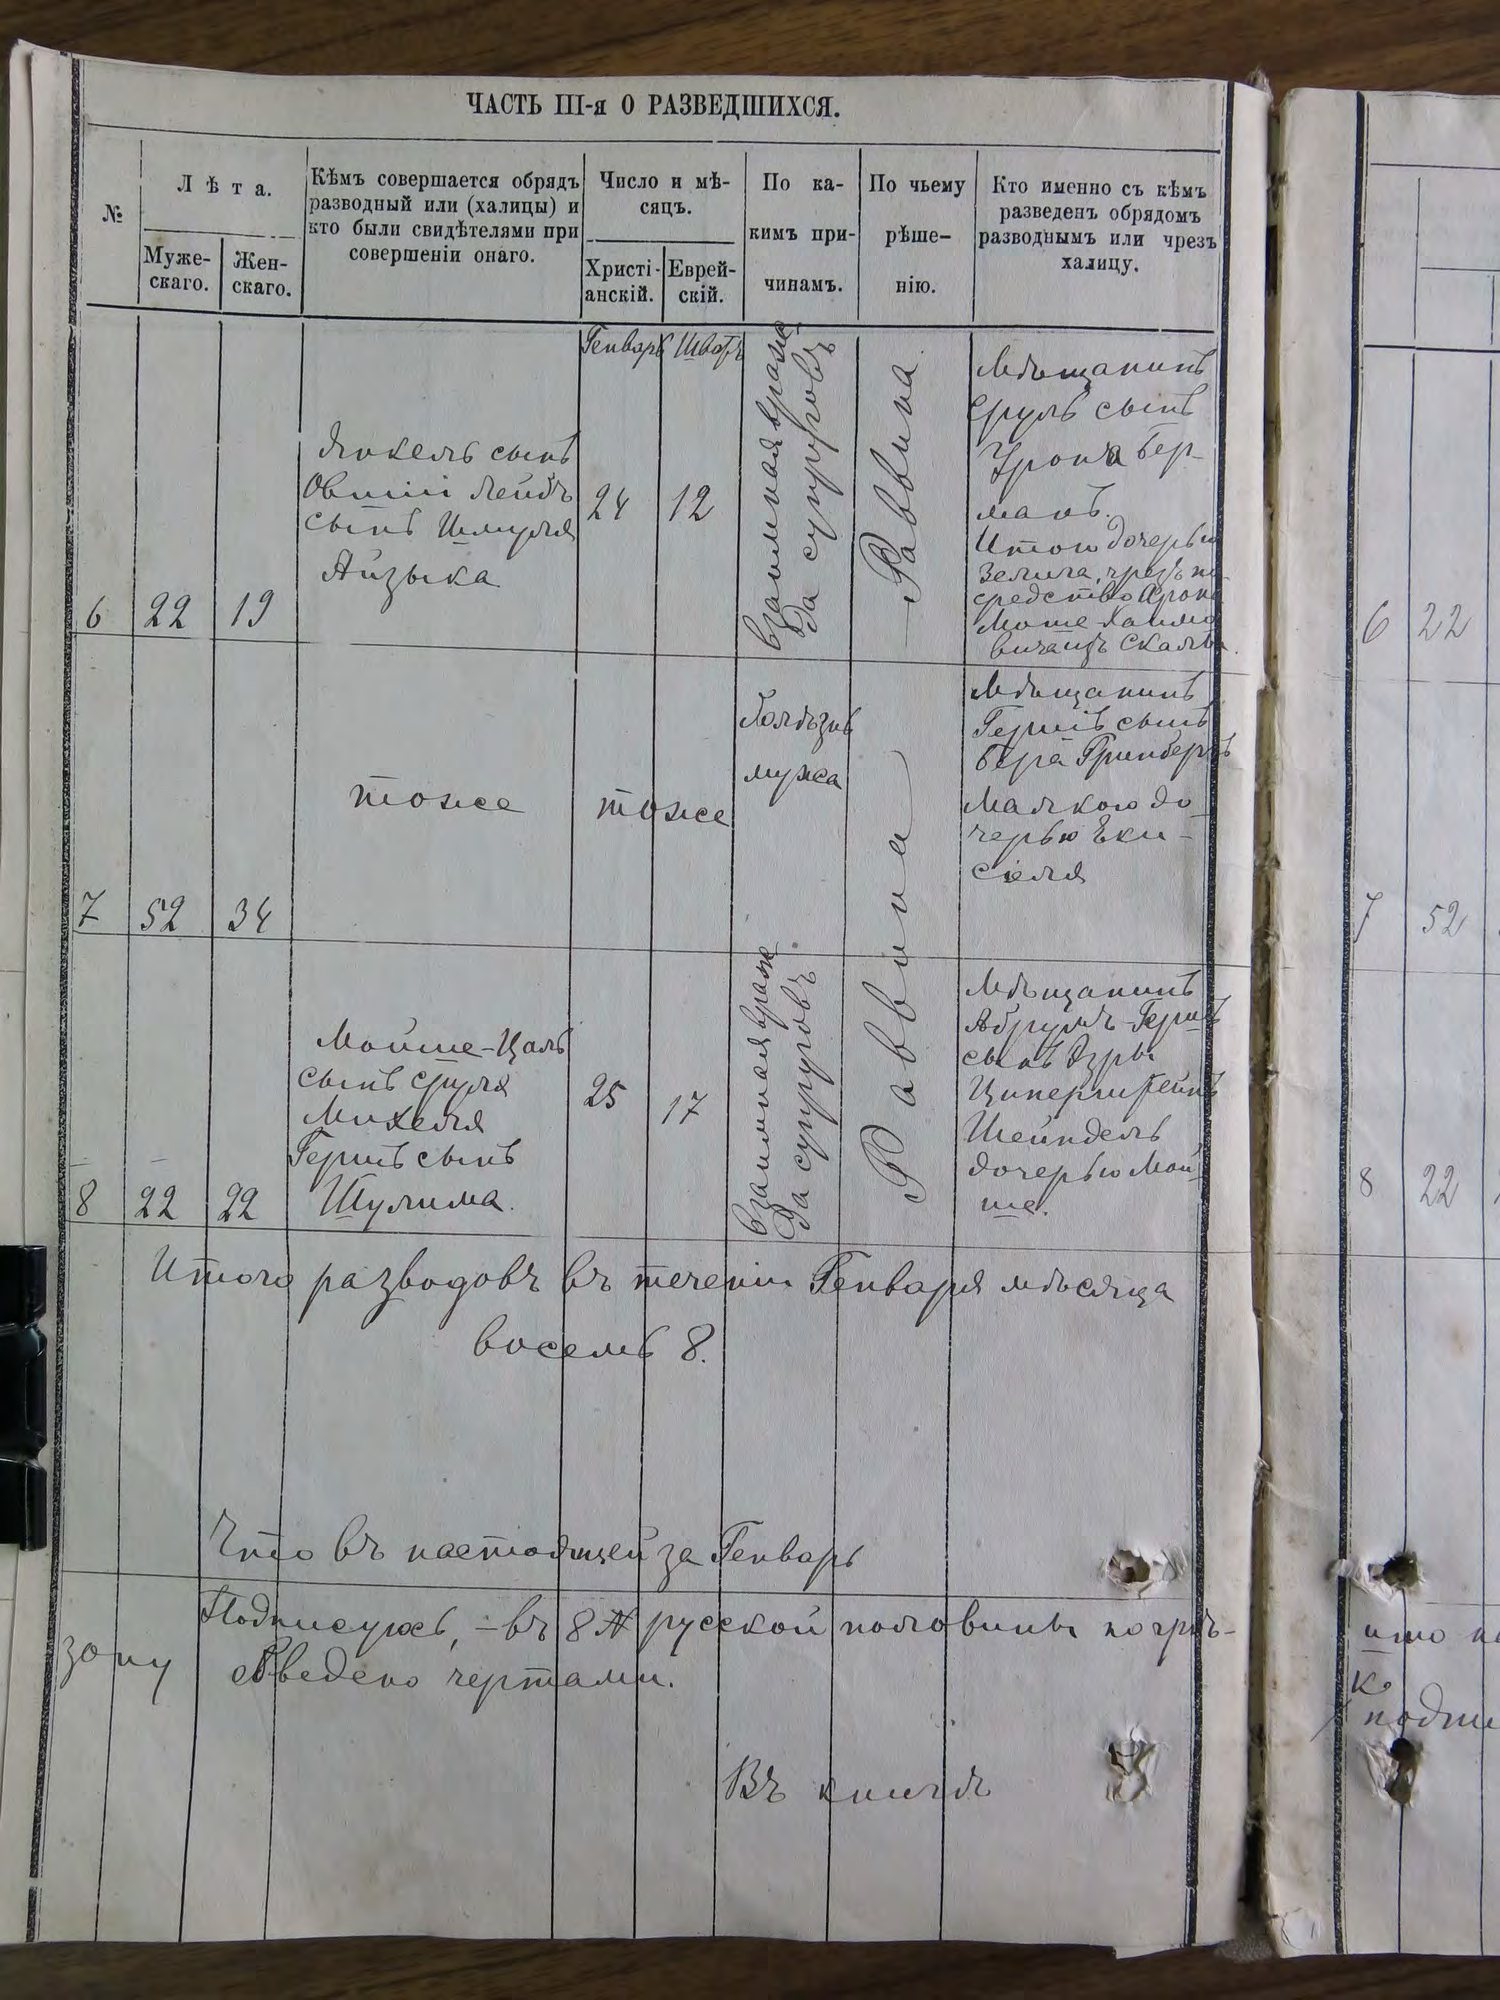 ЧАСТЬ III-я О РАЗВЕДШИХСЯ.
№
Лѣта.
Муже-
скаго.
Жен-
скаго.
Кѣмъ совершается обрядъ
разводный или (халицы) и
кто были свидѣтелями при
совершеніи онаго.
Число и мѣ-
сяцъ.
Христі-
анскій.
Еврей-
скій.
По ка-
кимъ при-
чинамъ.
По чьему
рѣше-
нію.
Кто именно съ кѣмъ
разведенъ обрядомъ
разводнымъ или чрезъ
халицу.
Генварь
Шватъ
6
22
19
Янкель сынъ
Овшіи Лейбъ
сынъ Шмуля
Айзыка
24
12
взаимная вражда
супруговъ
Раввина
Мѣщанинъ
Сруль сынъ
Урона Бер-
манъ.
Итою дочерью
Зелига, чрезъ по-
средство Арона
Моше Хаимо
вича изъ Скалы.
7
52
34
тоже
тоже
болѣзнь
мужа
Раввина
Мѣщанинъ
Гершъ сынъ
Бера Гринбергъ
Малкою до
черью Еки-
селя
8
22
22
Мойше-Цаль
сынъ Сруля
Михеля
Гершъ сынъ
Шулима.
25
17
взаимная враж
да супруговъ
Мѣщанинъ
Абрумъ-Гершъ
сынъ Эзры
Ципершtейнъ
Шейндель
дочерью Мой
ше.
Итого разводовъ въ теченіи Генваря мѣсяца
восемь 8.
Что въ настоящей за Генварь
Подписуюсь, – въ 8 № русской половины по гри-
зону обведено чертами.
Въ книгѣ
6 22
7 52
8 22
что на
к
подпи